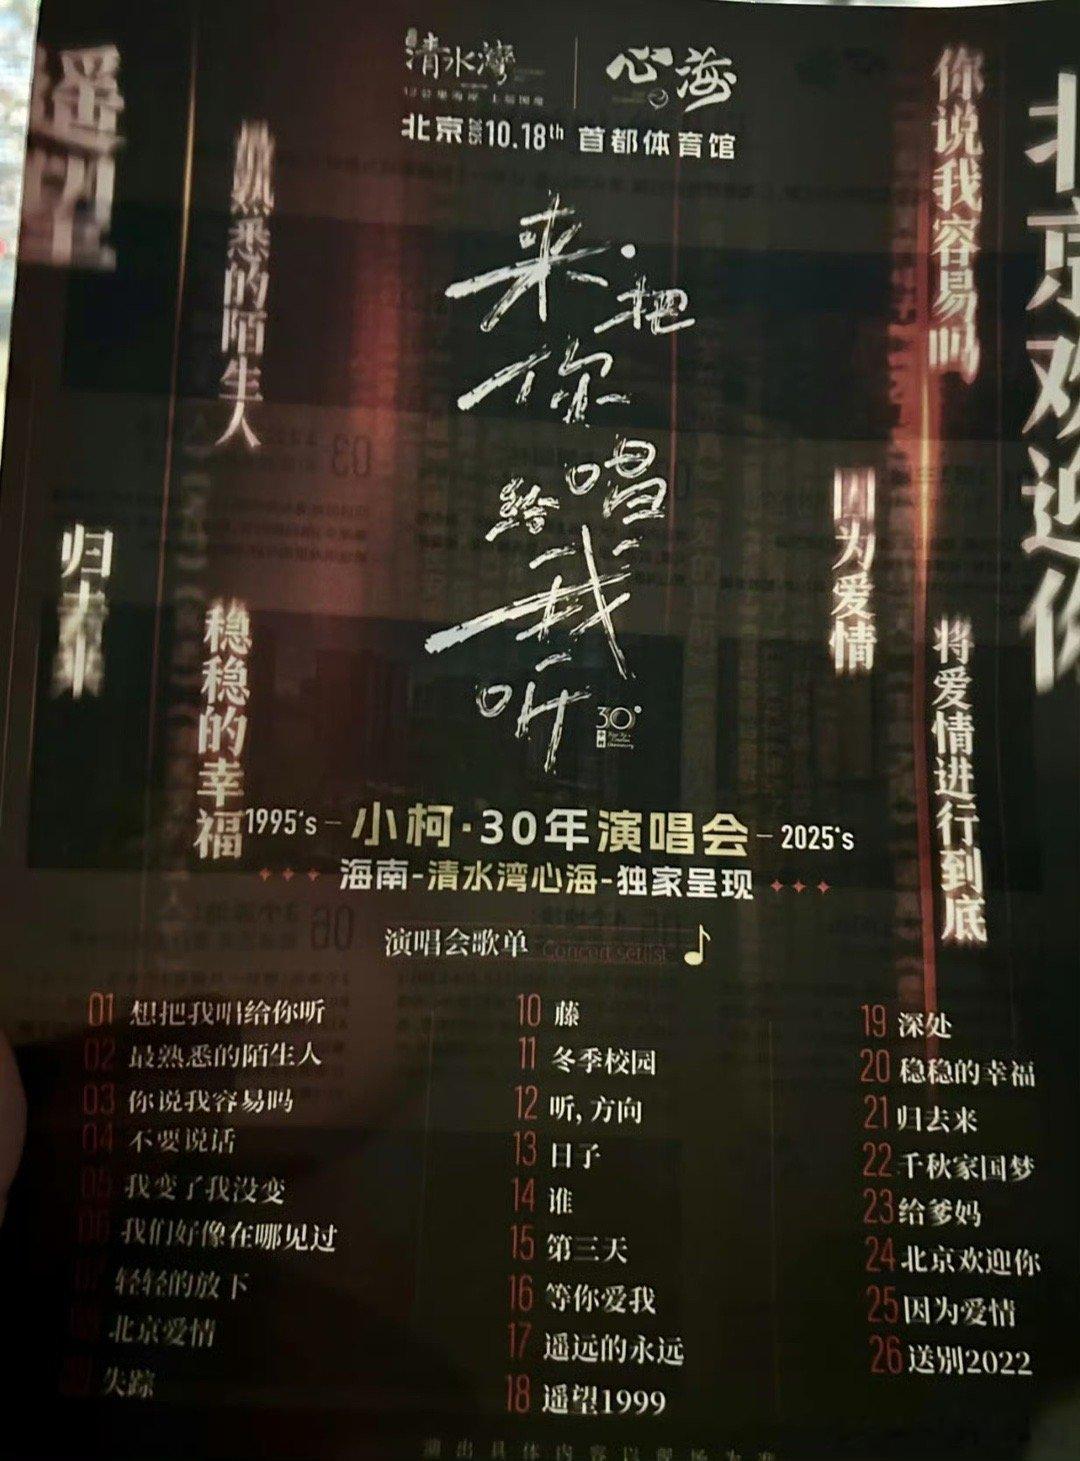 清水灣
心海
北京2025 10.18th 首都体育馆
来·把你唱给我听
30°
遥望
熟悉的陌生人
归去来
稳稳的幸福
你说我容易吗
北京欢迎你
因为爱情
将爱情进行到底
1995's – 小柯·30年演唱会 – 2025's
海南-清水湾心海-独家呈现
演唱会歌单 Concert setlist
01 想把我唱给你听
02 最熟悉的陌生人
03 你说我容易吗
04 不要说话
05 我变了我没变
06 我们好像在哪见过
07 轻轻的放下
08 北京爱情
09 失踪
10 藤
11 冬季校园
12 听,方向
13 日子
14 谁
15 第三天
16 等你爱我
17 遥远的永远
18 遥望1999
19 深处
20 稳稳的幸福
21 归去来
22 千秋家国梦
23 给爹妈
24 北京欢迎你
25 因为爱情
26 送别2022
演出具体内容以现场为准